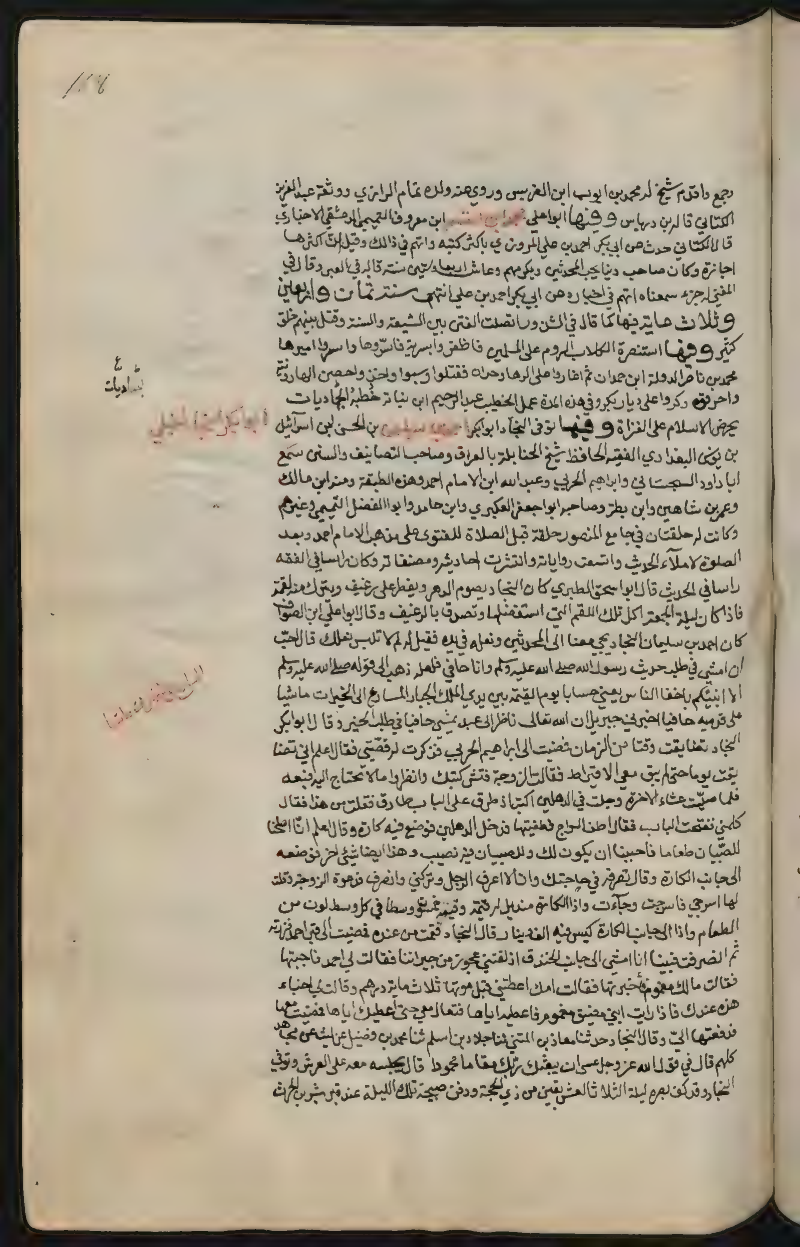 وجمع واقدم شيخ له محمد بن ايوب ابن الضريس وروي عنه ولده تمام الرازي ووثقه عبد العزيز
الكتاني قاله بن درباس وفيها ابو علي محمد بن ابن معروف التميمي الدمشقي الاخباري
قال الكتاني حدث عن ابي بكر احمد بن علي المروزي باكثر كتبه واتهم في ذالك وقيل ان اكثرها
اجازة وكان صاحب دنيا يحب المحدثين ويكرمهم وعاش اربعا وتسعين سنة قاله في العبر وقال في
المغني له جزء سمعناه اتهم في اخباره عن ابي بكر احمد بن علي انتهى سنة ثمان واربعين
وثلاث ماية فيها كما قال في الشذور اتصلت الفتن بين الشيعة والسنة وقتل بينهم خلق
كثير وفيها استنصرة الكلاب الروم على المسلمين فاظفروا بسرية فاسروها واسروا اميرها
محمد بن ناصر الدولة ابن حمدان ثم اغاروا على الرها وحران فقتلوا وسبوا واخذوا حصن الهارونية
واحرقوه وكروا على ديار بكر وفي هذه المدة عمل الخطيب عبد الرحيم ابن نباتة خطبة الجهاديات
يحرض الاسلام على الغزاة وفيها توفي النجاد ابو بكر احمد بن سليمان بن الحسن ابن اسرائيل
بن يونس البغدادي الفقيه الحافظ شيخ الحنابلة بالعراق وصاحب التصانيف والسنن سمع
ابا داود السجستاني وابراهيم الحربي وعبد الله ابن الامام احمد وهذه الطبقة ومنه ابن مالك
وعمر بن شاهين وابن بطة وصاحبه ابو جعفر العكبري وابن حامد وابو الفضل التميمي وغيرهم
وكانت له حلقتان في جامع المنصور حلقة قبل الصلاة للفتوى على مذهب الامام احمد وبعد
الصلوة لاملآء الحديث واتسعت رواياته وانتشرت احاديثه ومصنفاته وكان راسا في الفقه
راسا في الحديث قال ابو اسحق الطبري كان النجاد يصوم الدهر ويفطر على رغيف ويترك منه لقمة
فاذا كان ليلة الجمعة اكل تلك اللقم التي استفضلها وتصدق بالرغيف وقال ابو علي ابن الصواف
كان احمد بن سليمان النجاد يجي معنا الى المحدثين ونعله في يده فقيل له لم لا تلبس نعلك قال احب
ان امشي في طلب حديث رسول الله صلى الله عليه وسلم وانا حافي فلعله ذهب الى قوله صلى الله عليه وسلم
الا انبئكم باخف الناس يعني حسابا يوم القيمة بين يدي الملك الجبار المسارع الى الخيرات ماشيا
على قدميه حافيا اخبرني جبريل ان الله تعالى ناظر الى عبد يمشي حافيا في طلب الخير وقال ابو بكر
النجاد تضايقت وقتا من الزمان فمضيت الى ابراهيم الحربي فذكرت له قصتي فقال اعلم اني تضا
يقت يوما حتى لم يبق معي الا قيراط فقالت الزوجة فتش كتبك وانظر ما لا تحتاج اليه فبعه
فلما صليت عشاء الاخرة وجلست في الدهليز اكتب اذ طرق على الباب طارق فقلت من هذا فقال
كلمني ففتحت الباب فقال اطف السراج فطفيتها فدخل الدهليز فوضع فيه كارة وقال اعلم انا اصلحنا
للصبيان طعاما فاحببنا ان يكون لك وللصبيان فيه نصيب وهذا ايضا شيئ اخر فوضعه
الى جانب الكارة وقال تصرفه في حاجتك وانا لا اعرف الرجل وتركني وانصرف فدعوة الزوجة وقلت
لها اسرجي فاسرجت وجآءت واذا الكارة منديل له قيمة وفيه خمسون وسطا في كل وسط لون من
الطعام واذا الى جانب الكارة كيس فيه الف دينار قال النجاد فقمت من عنده فمضيت الى قبر احمد فزرته
ثم انصرفت فبينا انا امشي الى جانب الخندق اذ لقيتني عجوز من جيراننا فقالت لي احمد فاجبتها
فقالت مالك مغموم فاخبرتها فقالت امك اعطتني قبل موتها ثلاث ماية درهم وقالت لي اخبئي
هذه عندك فاذا رايت ابني مضيق مغموم فاعطيه اياها فتعال معي حتى اعطيك اياها فمضيت معها
فدفعتها الي وقال النجاد حدثنا معاذ بن المثني ثنا خلاد بن اسلم ثنا محمد بن فضيل عن ليث عن مجاهد
كلهم قال في قول الله عز وجل عسى ان يبعثك ربك مقاما محمودا قال يجلسه معه على العرش وتوفي
النجاد وقد كف بصره ليلة الثلاثا لعشر بقين من ذي الحجة ودفن صبيحة تلك الليلة عند قبر بشر بن الحرث
ابو بكر النجاد الحنبلي